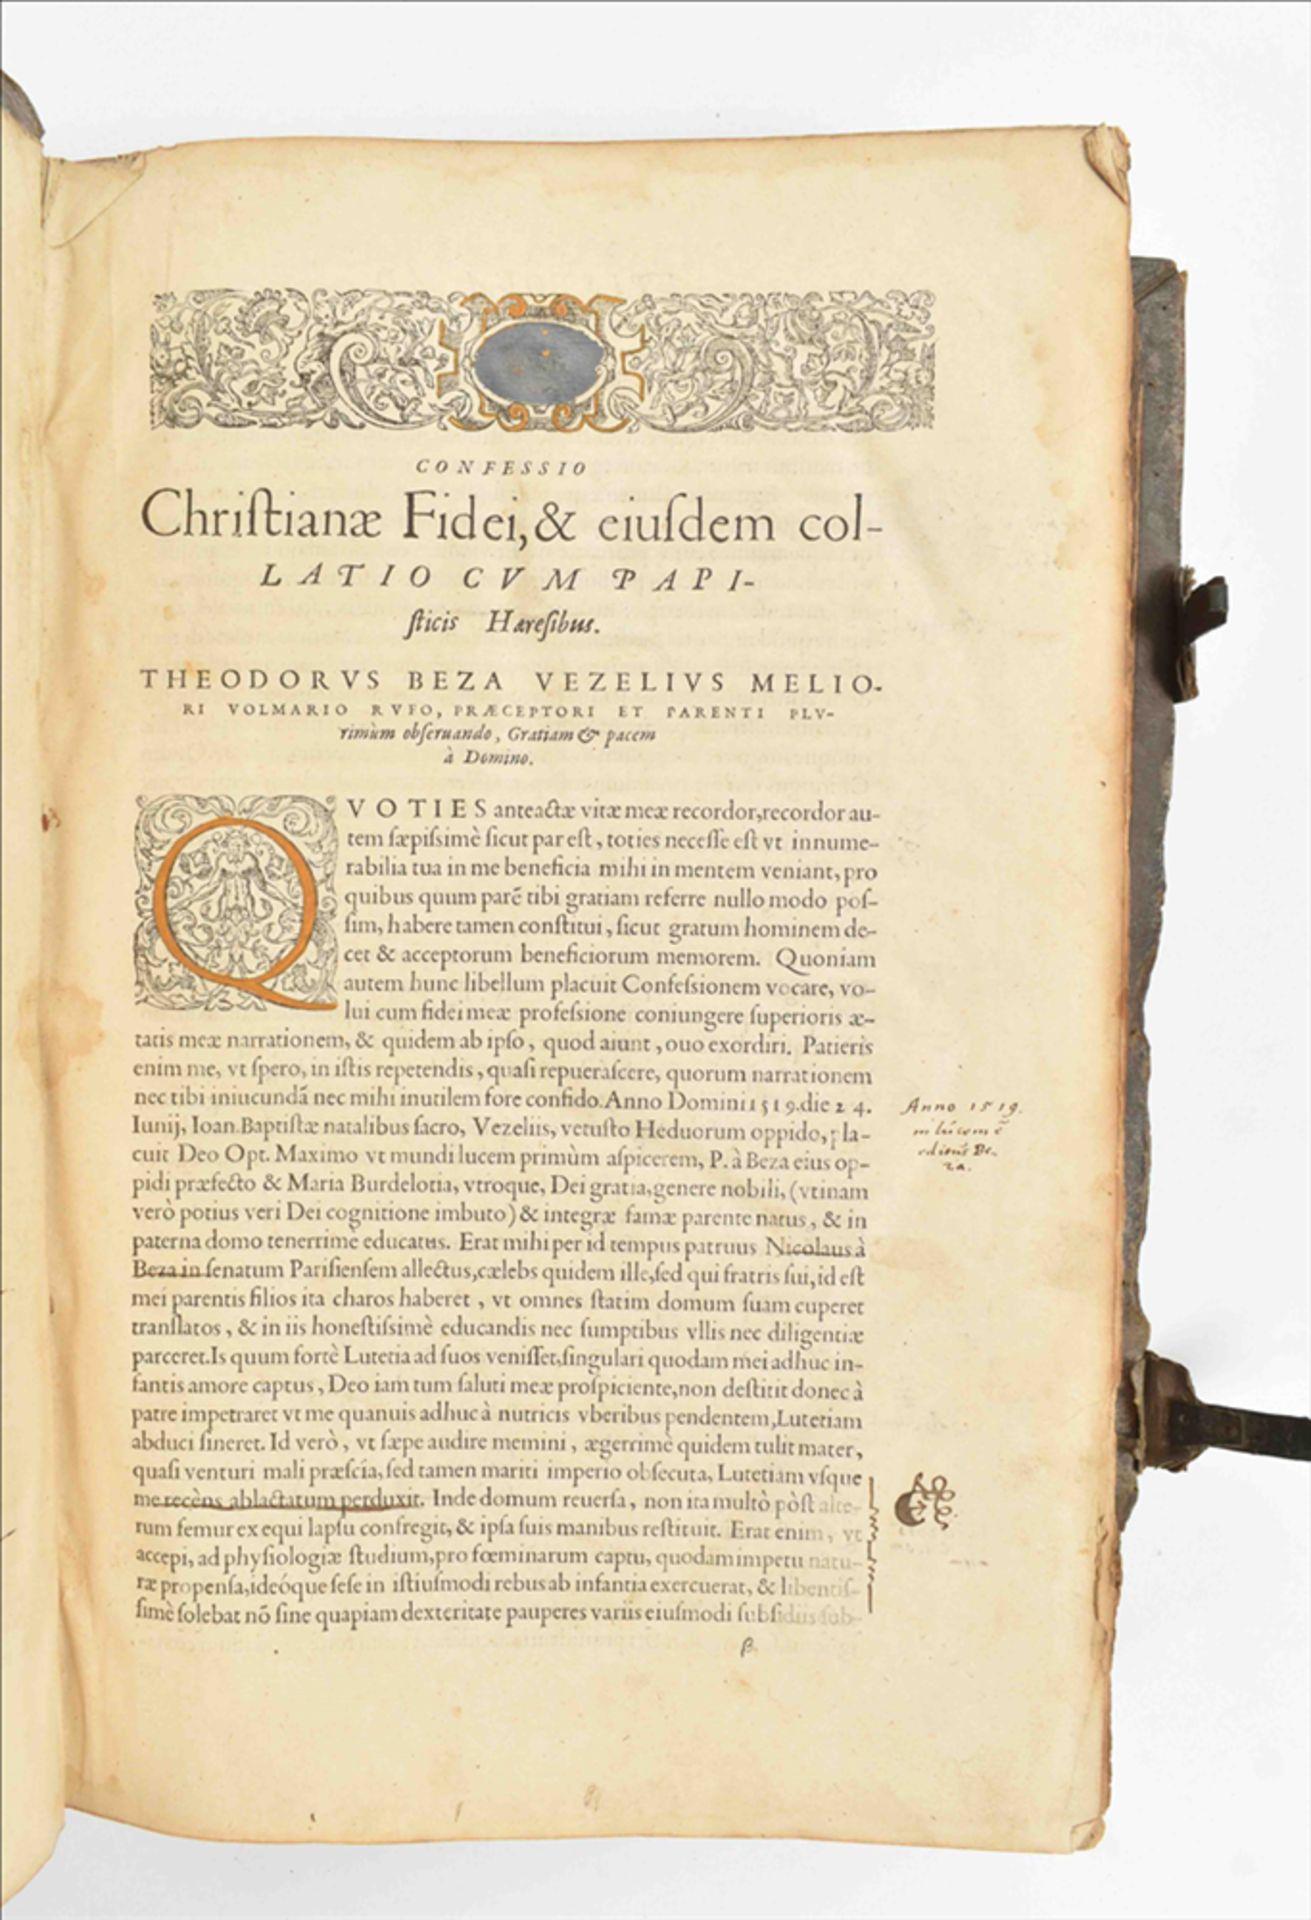 CONFESSIO
Chriſtianæ Fidei, & eiuſdem col-
LATIO CVM PAPI-
ſticis Hæreſibus.
THEODORVS BEZA VEZELIVS MELIO-
RI VOLMARIO RVFO, PRÆCEPTORI ET PARENTI PLV-
rimùm obſeruando, Gratiam & pacem
à Domino.
QVOTIES anteactæ vitæ meæ recordor, recordor au-
tem ſæpiſsimè ſicut par eſt, toties neceſſe eſt vt innume-
rabilia tua in me beneficia mihi in mentem veniant, pro
quibus quum parē tibi gratiam referre nullo modo poſ-
ſim, habere tamen conſtitui, ſicut gratum hominem de-
cet & acceptorum beneficiorum memorem. Quoniam
autem hunc libellum placuit Confeſsionem vocare, vo-
lui cum fidei meæ profeſsione coniungere ſuperioris æ-
tatis meæ narrationem, & quidem ab ipſo, quod aiunt, ouo exordiri. Patieris
enim me, vt ſpero, in iſtis repetendis, quaſi repueraſcere, quorum narrationem
nec tibi iniucundā nec mihi inutilem fore confido. Anno Domini 1519. die 24.
Iunij, Ioan. Baptiſtæ natalibus ſacro, Vezeliis, vetuſto Heduorum oppido, pla-
cuit Deo Opt. Maximo vt mundi lucem primùm aſpicerem, P. à Beza eius op-
pidi præfecto & Maria Burdelotia, vtroque, Dei gratia, genere nobili, (vtinam
verò potius veri Dei cognitione imbuto) & integræ famæ parente natus, & in
paterna domo tenerrimè educatus. Erat mihi per id tempus patruus Nicolaus à
Beza in ſenatum Pariſienſem allectus, cælebs quidem ille, ſed qui fratris ſui, id eſt
mei parentis filios ita charos haberet, vt omnes ſtatim domum ſuam cuperet
tranſlatos, & in iis honeſtiſsimè educandis nec ſumptibus vllis nec diligentiæ
parceret. Is quum fortè Lutetia ad ſuos veniſſet, ſingulari quodam mei adhuc in-
fantis amore captus, Deo iam tum ſaluti meæ proſpiciente, non deſtitit donec à
patre impetraret vt me quanuis adhuc à nutricis vberibus pendentem, Lutetiam
abduci ſineret. Id verò, vt ſæpe audire memini, ægerrimè quidem tulit mater,
quaſi venturi mali præſcia, ſed tamen mariti imperio obſecuta, Lutetiam vſque
me recèns ablactatum perduxit. Inde domum reuerſa, non ita multò pòſt alte-
rum femur ex equi lapſu confregit, & ipſa ſuis manibus reſtituit. Erat enim, vt
accepi, ad phyſiologiæ ſtudium, pro fœminarum captu, quodam impetu natu-
ræ propenſa, ideóque ſeſe in iſtiuſmodi rebus ab infantia exercuerat, & libentiſ-
ſimè ſolebat nō ſine quapiam dexteritate pauperes variis eiuſmodi ſubſidiis ſub-
β
Anno 1519.
in lucem ē
editus Be-
za.